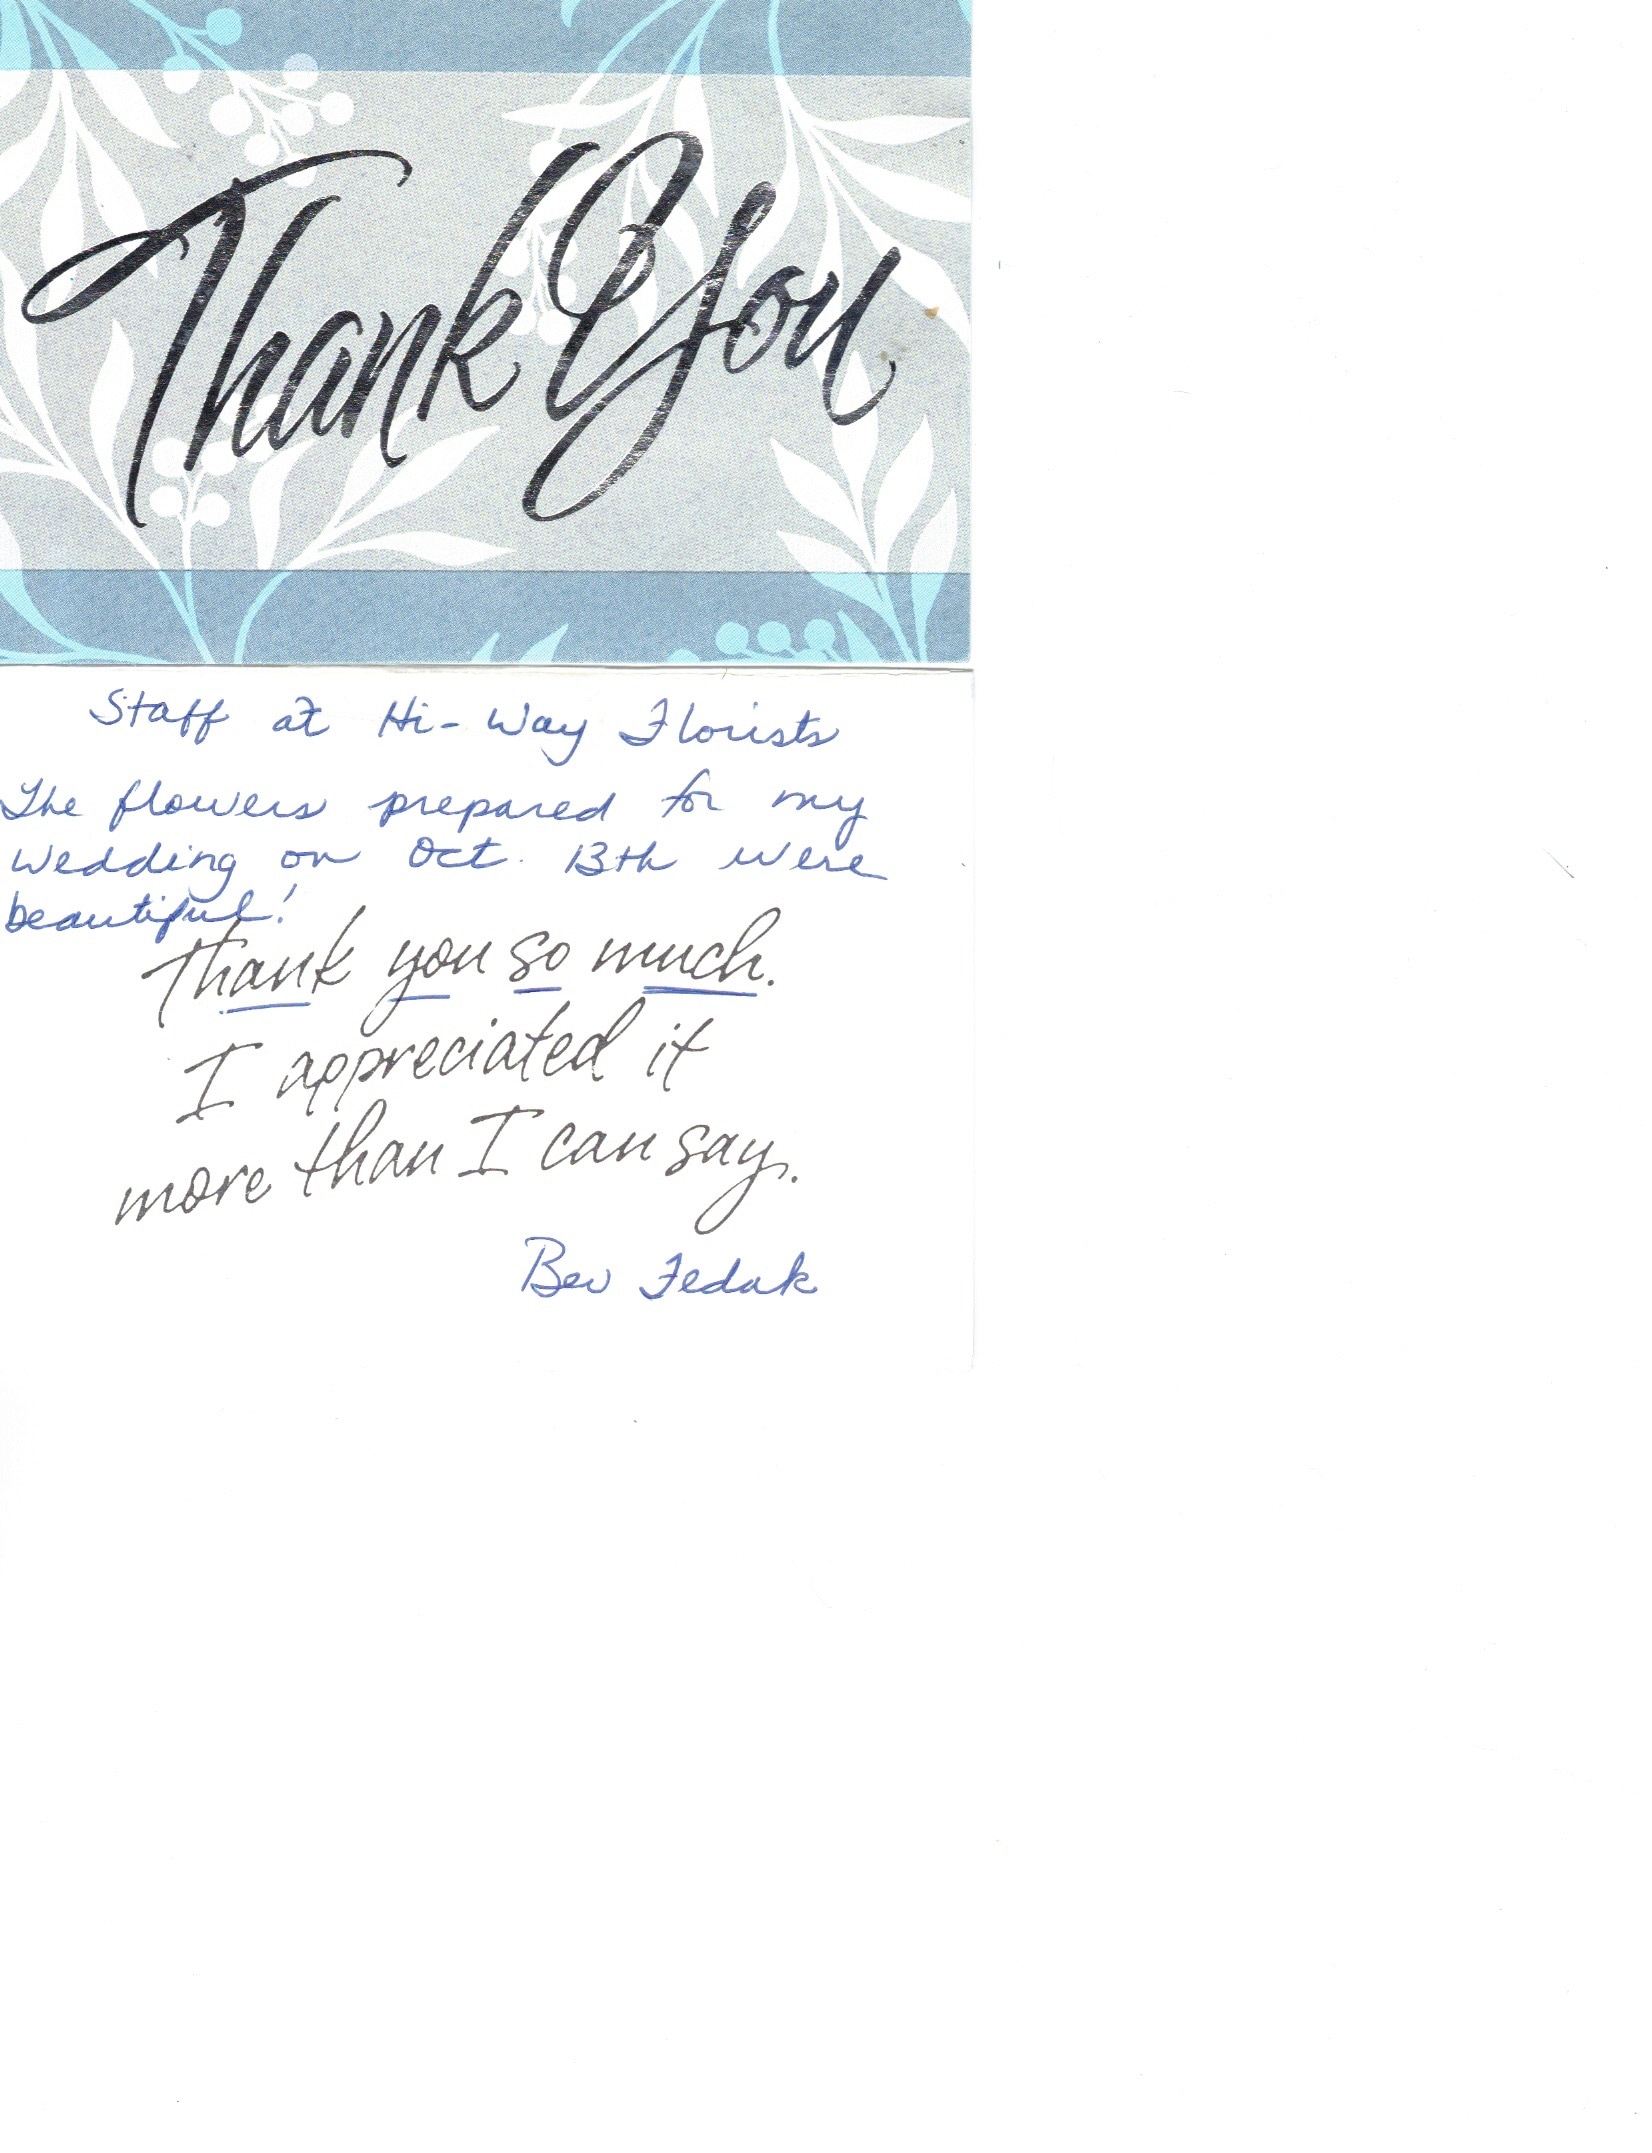 Thank You
Staff at Hi-Way Florists
The flowers prepared for my
wedding on Oct. 13th were
beautiful!
Thank you so much.
I appreciated it
more than I can say.
Bev Fedak